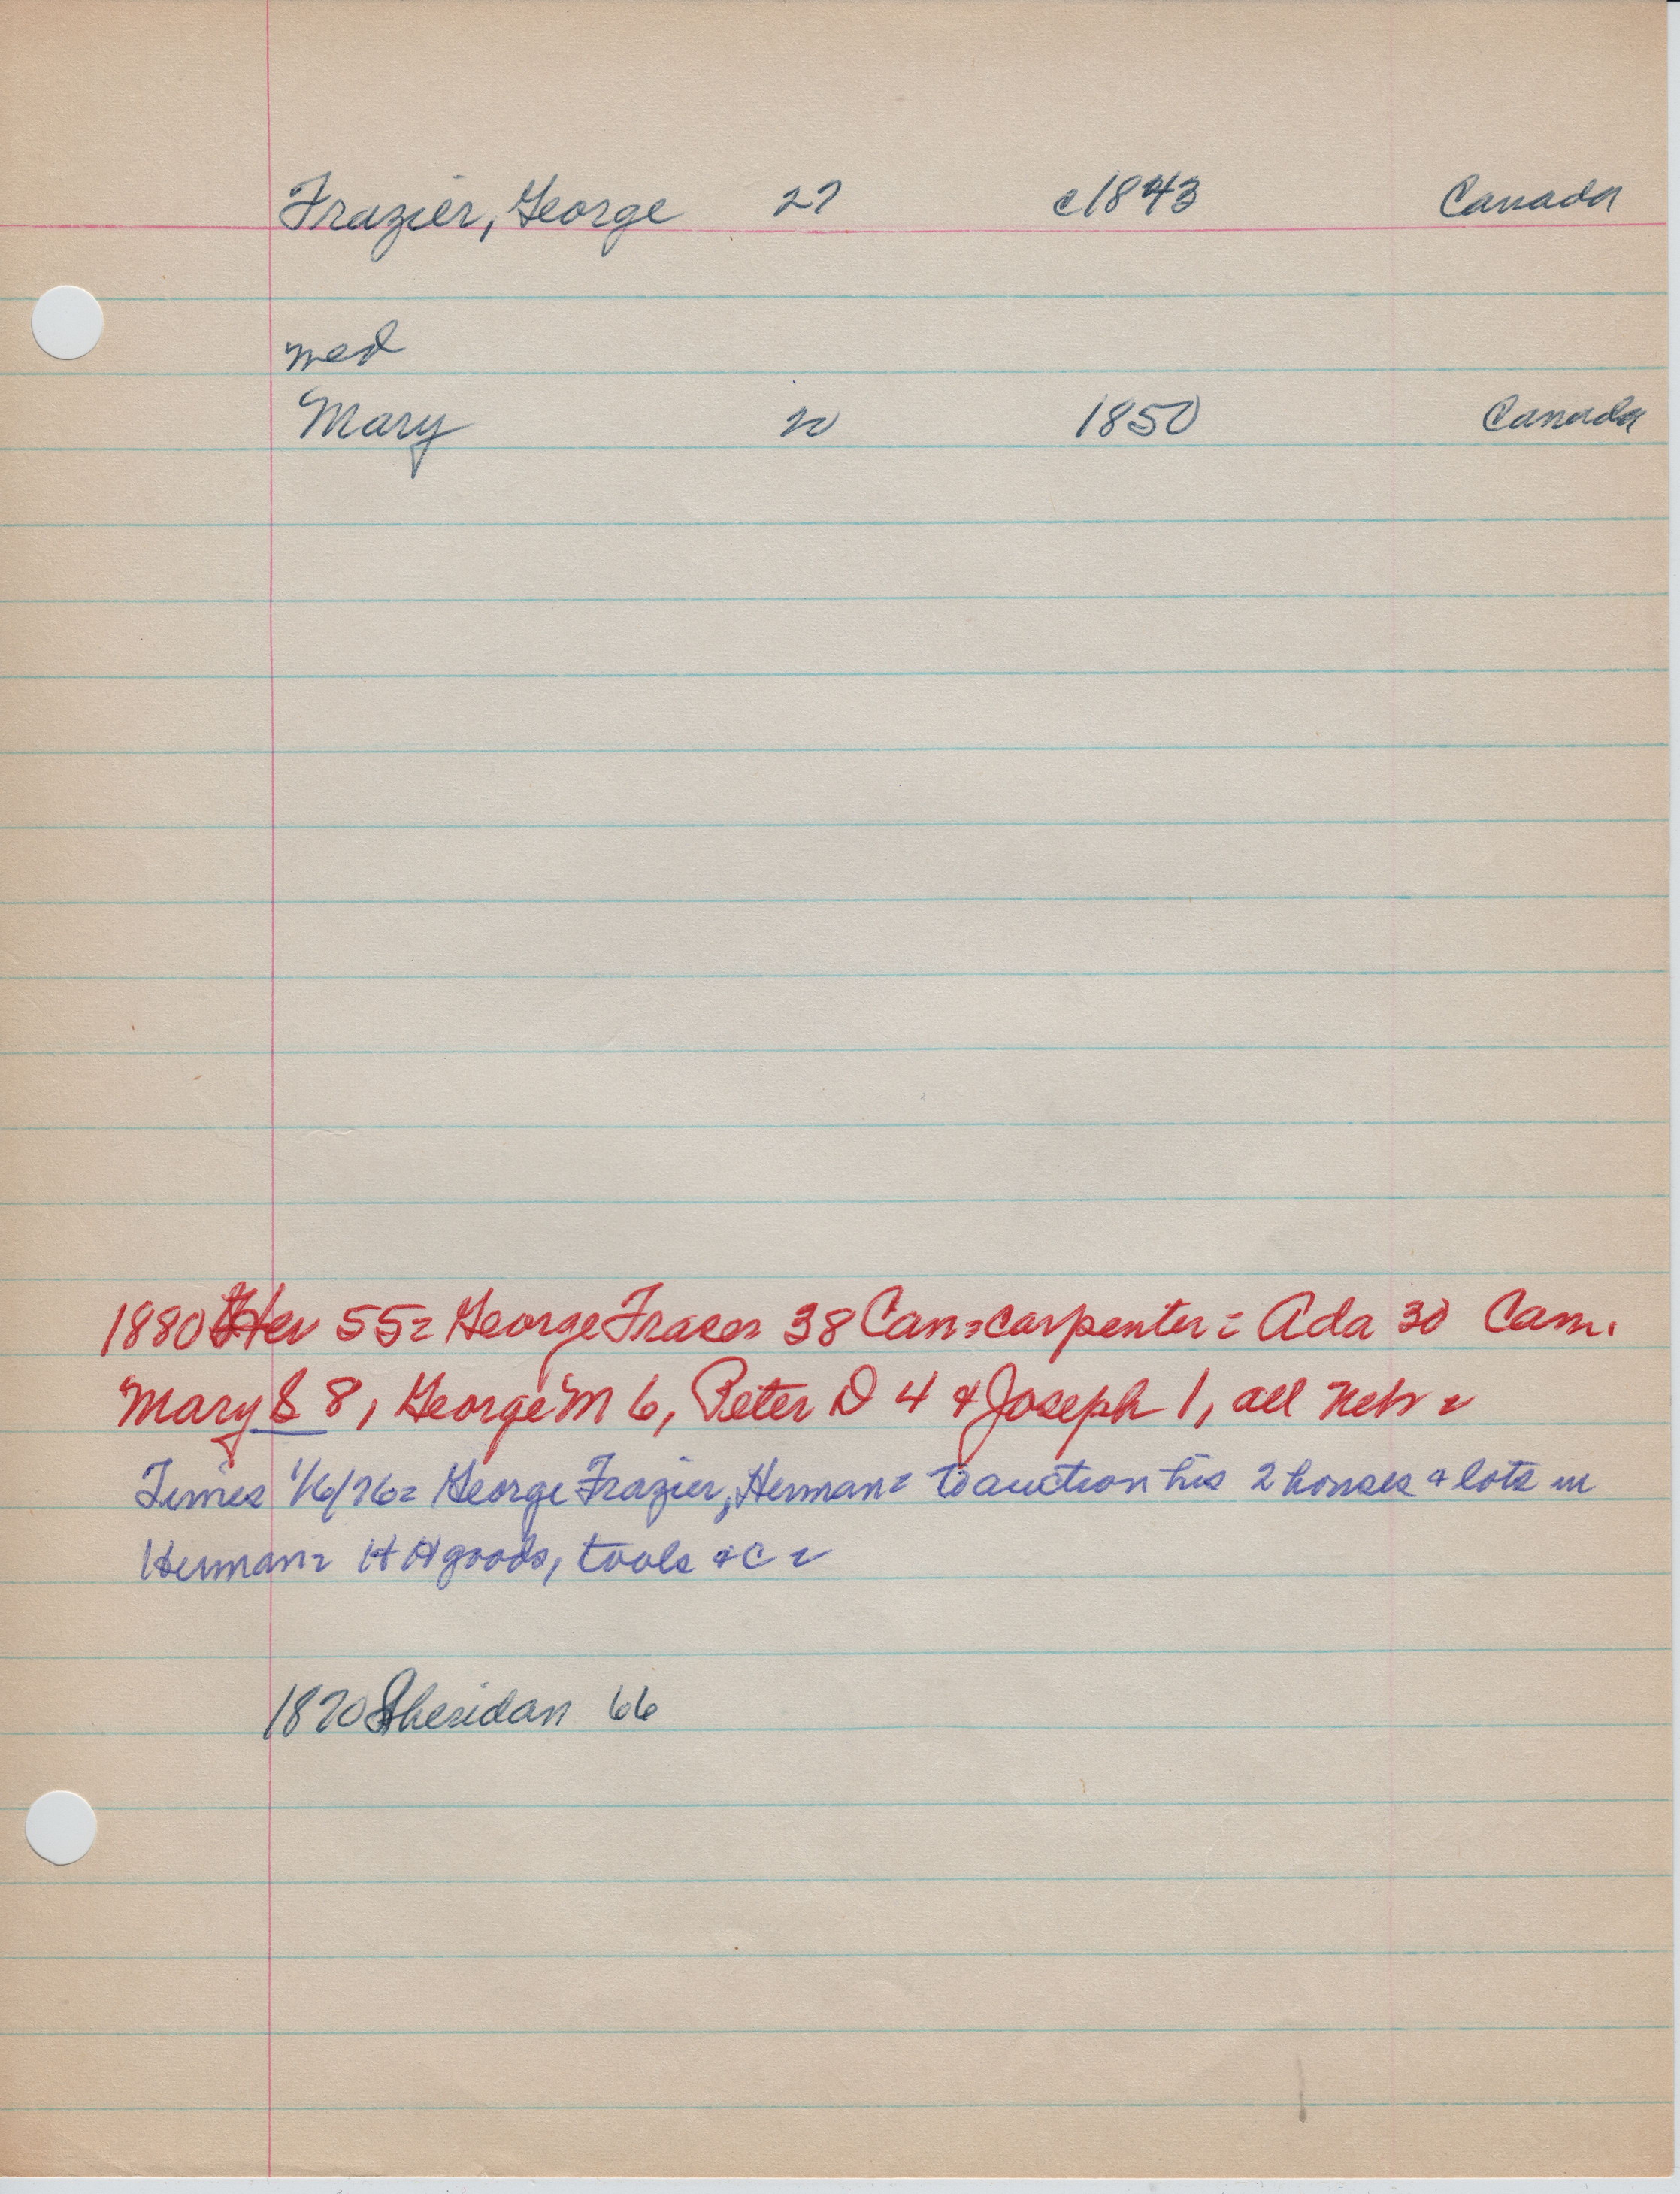 Frazier, George 27 c1843 Canada
med
Mary 20 1850 Canada
1880 Her 55= George Fraser 38 Can=carpenter= Ada 30 Can.
Mary S 8, George M 6, Peter D 4 & Joseph 1, all Neb =
Times 1/6/76= George Frazier, Herman= to auction his 2 houses & lots in
Herman= HH goods, tools &c =
1870 Sheridan 66